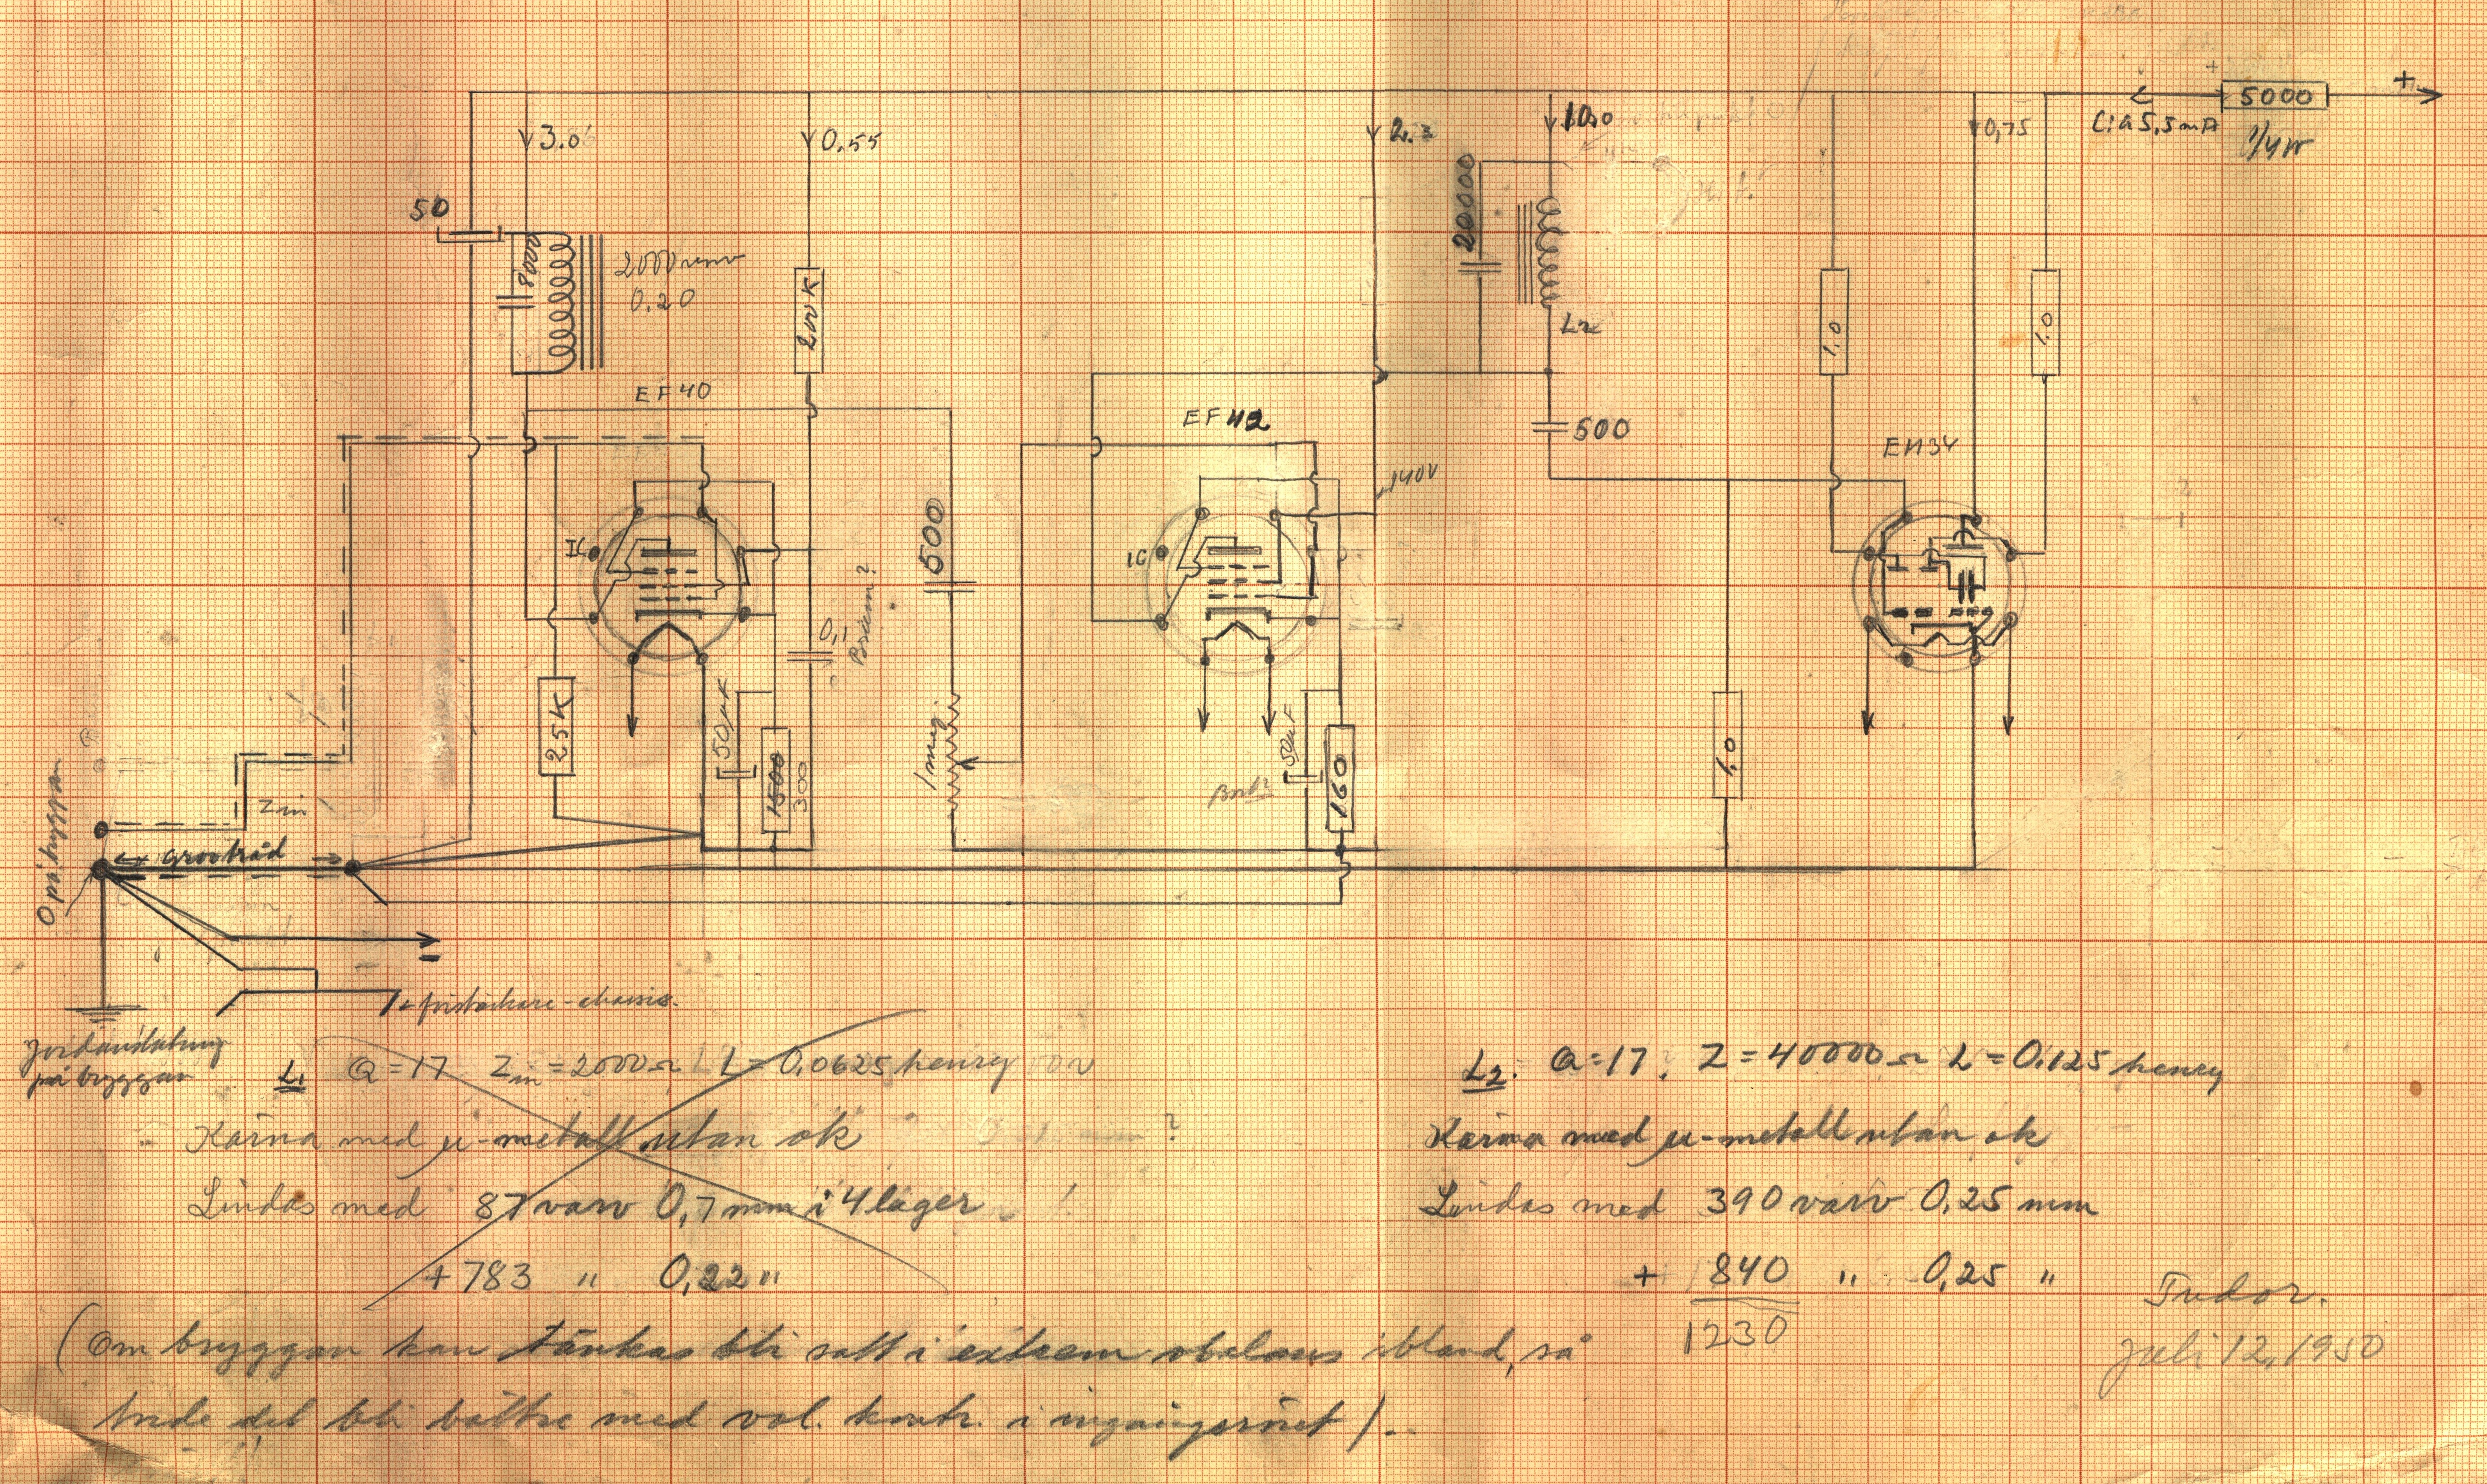 5000
+
C:a 5,5 mA
1/4W
3.0
0.55
2.
10,0
0,75
50
8000
2000 varv
0.20
200K
200000
L2
1.0
1.0
EF40
EF42
500
EM34
140V
IC
IC
500
0,1
25K
50µF
1500
300
1 meg.
50µF
160
1.0
0 på bryggan
Zin
grovtråd
-
förstärkare-chassis.
Jordanslutning
på bryggan
L1 Q=17 Zin=2000Ω L=0,0625 henry
Kärna med µ-metall utan ok
Lindas med 87 varv 0,7 mm i 4 lager
+ 783 " 0,22 "
L2: Q=17. Z=40000Ω L=0.125 henry
Kärna med µ-metall utan ok
Lindas med 390 varv 0,25 mm
+ 840 " 0,25 "
1230
Tudor.
Juli 12, 1950
(Om bryggan kan tänkas bli satt i extrem obalans ibland, så
det bli bättre med vol. kontr. i ingångsröret).